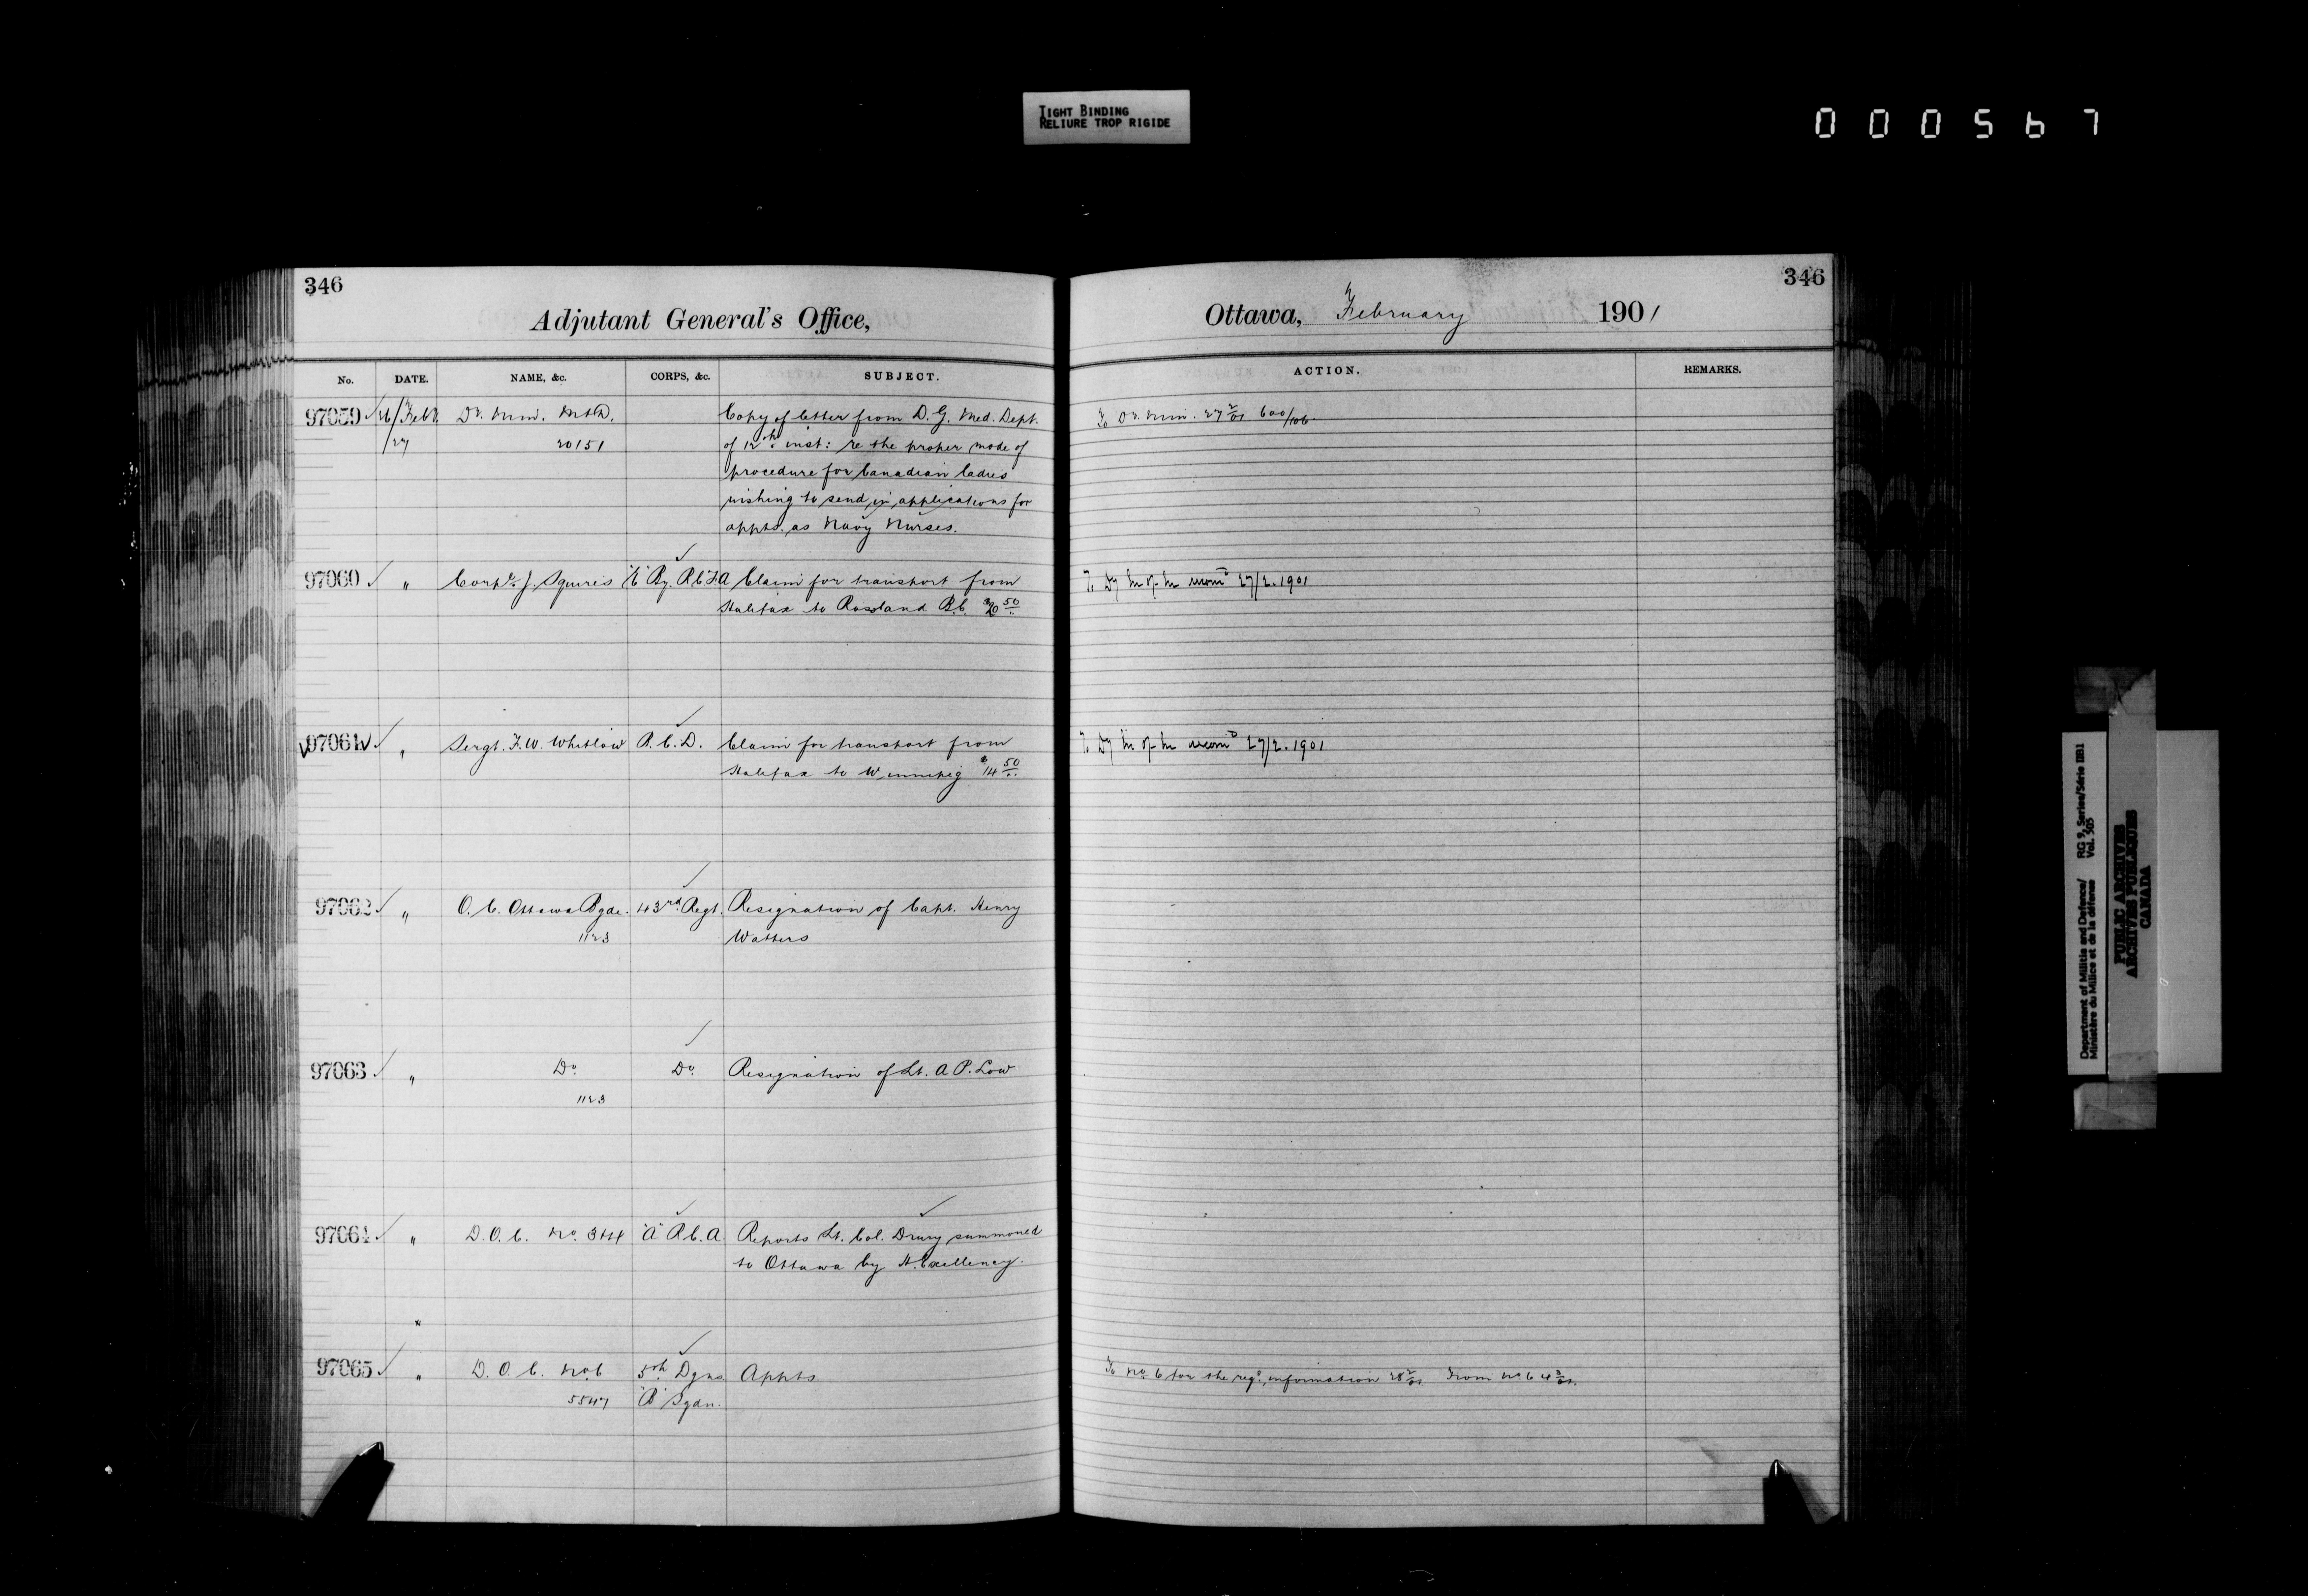 TIGHT BINDING
RELIURE TROP RIGIDE
000567
346
Adjutant General's Office,
No. DATE. NAME, &c. CORPS, &c. SUBJECT.
97059 26/Feby. Dr. Min. M&D. Copy of letter from D. G. Med. Dept.
/27 20151 of 12th inst: re the proper mode of
procedure for Canadian ladies
wishing to send in applications for
appts. as Navy Nurses.
97060 " Corpl. J. Squires "C" By. R.C.F.A Claim for transport from
Halifax to Rossland B.C. 50
97061 " Sergt. F.W. Whitlow R.C.D. Claim for transport from
Halifax to Winnipeg $14 50
97062 " O.C. Ottawa Bgde. 43rd Regt. Resignation of Capt. Henry
1123 Watters
97063 " Do. Do. Resignation of Lt. A P. Low
1123
97064 " D.O.C. No. 3&4 "A" R.C.A. Reports Lt. Col. Drury summoned
to Ottawa by H. Excellency.
"
97065 " D.O.C. No 6 5th Dgns Appts
5547 "B" Sqdn.
346
Ottawa, February 1901
ACTION. REMARKS.
To Dr. Min. 27 2/01 600/106
To 27/2.1901
To 27/2.1901
To No. 6 for the reqd. information 28 2/01 From No. 6 4 3/01.
Department of Militia and Defence/ RG 9, Series/Série IIB1
Ministère du Milice et de la défense Vol. 505
PUBLIC ARCHIVES
ARCHIVES PUBLIQUES
CANADA